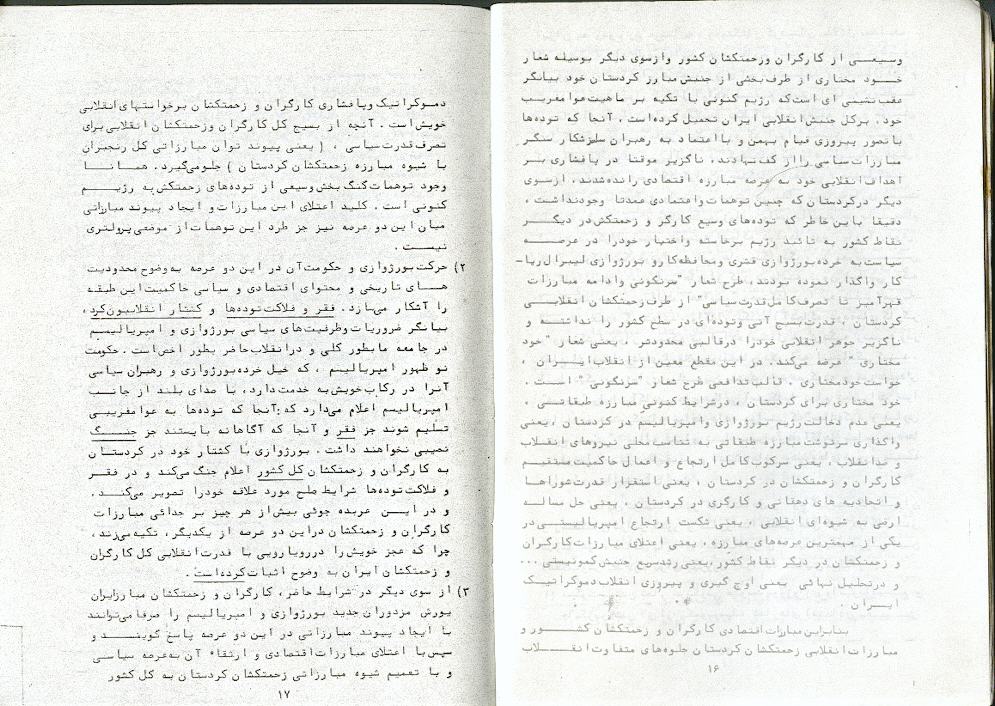 وسیعی از کارگران وزحمتکشان کشور وازسوی دیگر بوسیله شعار
خود مختاری از طرف بخشی از جنبش مبارز کردستان خود بیانگر
عقب نشینی ای است که رژیم کنونی با تکیه بر ماهیت عوامفریب
خود، برکل جنبش انقلابی ایران تحمیل کرده است، آنجا که توده‌ها
باتصور پیروزی قیام بهمن و بااعتماد به رهبران سازشکار سنگر
مبارزات سیاسی را از کف نهادند، ناگزیر موقتا در پافشاری بر
اهداف انقلابی خود به عرصه مبارزه اقتصادی رانده شدند، ازسوی
دیگر درکردستان که چنین توهمات واعتمادی عمدتا وجودنداشت،
دقیقا باین خاطر که توده‌های وسیع کارگر و زحمتکش در دیگر
نقاط کشور به تائید رژیم برخاسته واختیار خودرا در عرصه
سیاست به خرده بورژوازی قشری ومحافظه‌کار و بورژوازی لیبرال ریا-
کار واگذار نموده بودند، طرح شعار "سرنگونی وادامه مبارزات
قهرآمیز تا تصرف کامل قدرت سیاسی" از طرف زحمتکشان انقلابی
کردستان، قدرت بسیج آنی وتوده‌ای در سطح کشور را نداشته و
ناگزیر جوهر انقلابی خودرا درقالبی محدودتر، یعنی شعار "خود
مختاری" عرضه می‌کند. در این مقطع معین از انقلاب ایران،
خواست خودمختاری، قالب تدافعی طرح شعار "سرنگونی" است.
خود مختاری برای کردستان، درشرایط کنونی مبارزه طبقاتی،
یعنی عدم دخالت رژیم بورژوازی وامپریالیسم در کردستان، یعنی
واگذاری سرنوشت مبارزه طبقاتی به تناسب محلی نیروهای انقلاب
و ضدانقلاب، یعنی سرکوب کامل ارتجاع و اعمال حاکمیت مستقیم
کارگران و زحمتکشان در کردستان، یعنی استقرار قدرت شوراها
و اتحادیه های دهقانی و کارگری در کردستان، یعنی حل مساله
ارضی به شیوه‌ای انقلابی، یعنی شکست ارتجاع امپریالیستی در
یکی از مهمترین عرصه‌های مبارزه، یعنی اعتلای مبارزات کارگران
و زحمتکشان در دیگر نقاط کشور، یعنی رشد سریع جنبش کمونیستی ...
و درتحلیل نهائی یعنی اوج گیری و پیروزی انقلاب دموکراتیک
ایران.
بنابراین مبارزات اقتصادی کارگران و زحمتکشان کشور و
مبارزات انقلابی زحمتکشان کردستان جلوه‌های متفاوت انقلاب
۱۶
دموکراتیک وپافشاری کارگران و زحمتکشان برخواستهای انقلابی
خویش است. آنچه از بسیج کل کارگران وزحمتکشان انقلابی برای
تصرف قدرت سیاسی، (یعنی پیوند توان مبارزاتی کل رنجبران
با شیوه مبارزه زحمتکشان کردستان) جلومی‌گیرد. همانا
وجود توهمات گنگ بخش وسیعی از توده‌های زحمتکش به رژیم
کنونی است. کلید اعتلای این مبارزات و ایجاد پیوند مبارزاتی
میان این دو عرصه نیز جز طرد این توهمات از موضعی پرولتری
نیست.
۲) حرکت بورژوازی و حکومت آن در این دو عرصه به وضوح محدودیت
های تاریخی و محتوای اقتصادی و سیاسی حاکمیت این طبقه
را آشکار می‌سازد. فقر و فلاکت توده‌ها و کشتار انقلابیون کرد،
بیانگر ضروریات وظرفیت‌های سیاسی بورژوازی و امپریالیسم
در جامعه مابطور کلی و درانقلاب حاضر بطور اخص است. حکومت
نو ظهور امپریالیسم، که خیل خرده بورژوازی و رهبران سیاسی
آنرا در رکاب خویش به خدمت دارد، با صدای بلند از جانب
امپریالیسم اعلام می‌دارد که: آنجا که توده‌ها به عوامفریبی
تسلیم شوند جز فقر و آنجا که آگاهانه بایستند جز جنگ
نصیبی نخواهند داشت. بورژوازی با کشتار خود در کردستان
به کارگران و زحمتکشان کل کشور اعلام جنگ می‌کند و در فقر
و فلاکت توده‌ها شرایط صلح مورد علاقه خودرا تصویر می‌کند.
و در این عربده جوئی بیش از هر چیز بر جدائی مبارزات
کارگران و زحمتکشان دراین دو عرصه از یکدیگر، تکیه می‌زند،
چرا که عجز خویش را دررویارویی با قدرت انقلابی کل کارگران
و زحمتکشان ایران به وضوح اثبات کرده است.
۳) از سوی دیگر در شرایط حاضر، کارگران و زحمتکشان مبارز ایران
یورش مزدوران جدید بورژوازی و امپریالیسم را صرفا می‌توانند
با ایجاد پیوند مبارزاتی در این دو عرصه پاسخ گویند و
سپس با اعتلای مبارزات اقتصادی و ارتقاء آن به عرصه سیاسی
و با تعمیم شیوه مبارزاتی زحمتکشان کردستان به کل کشور
۱۷